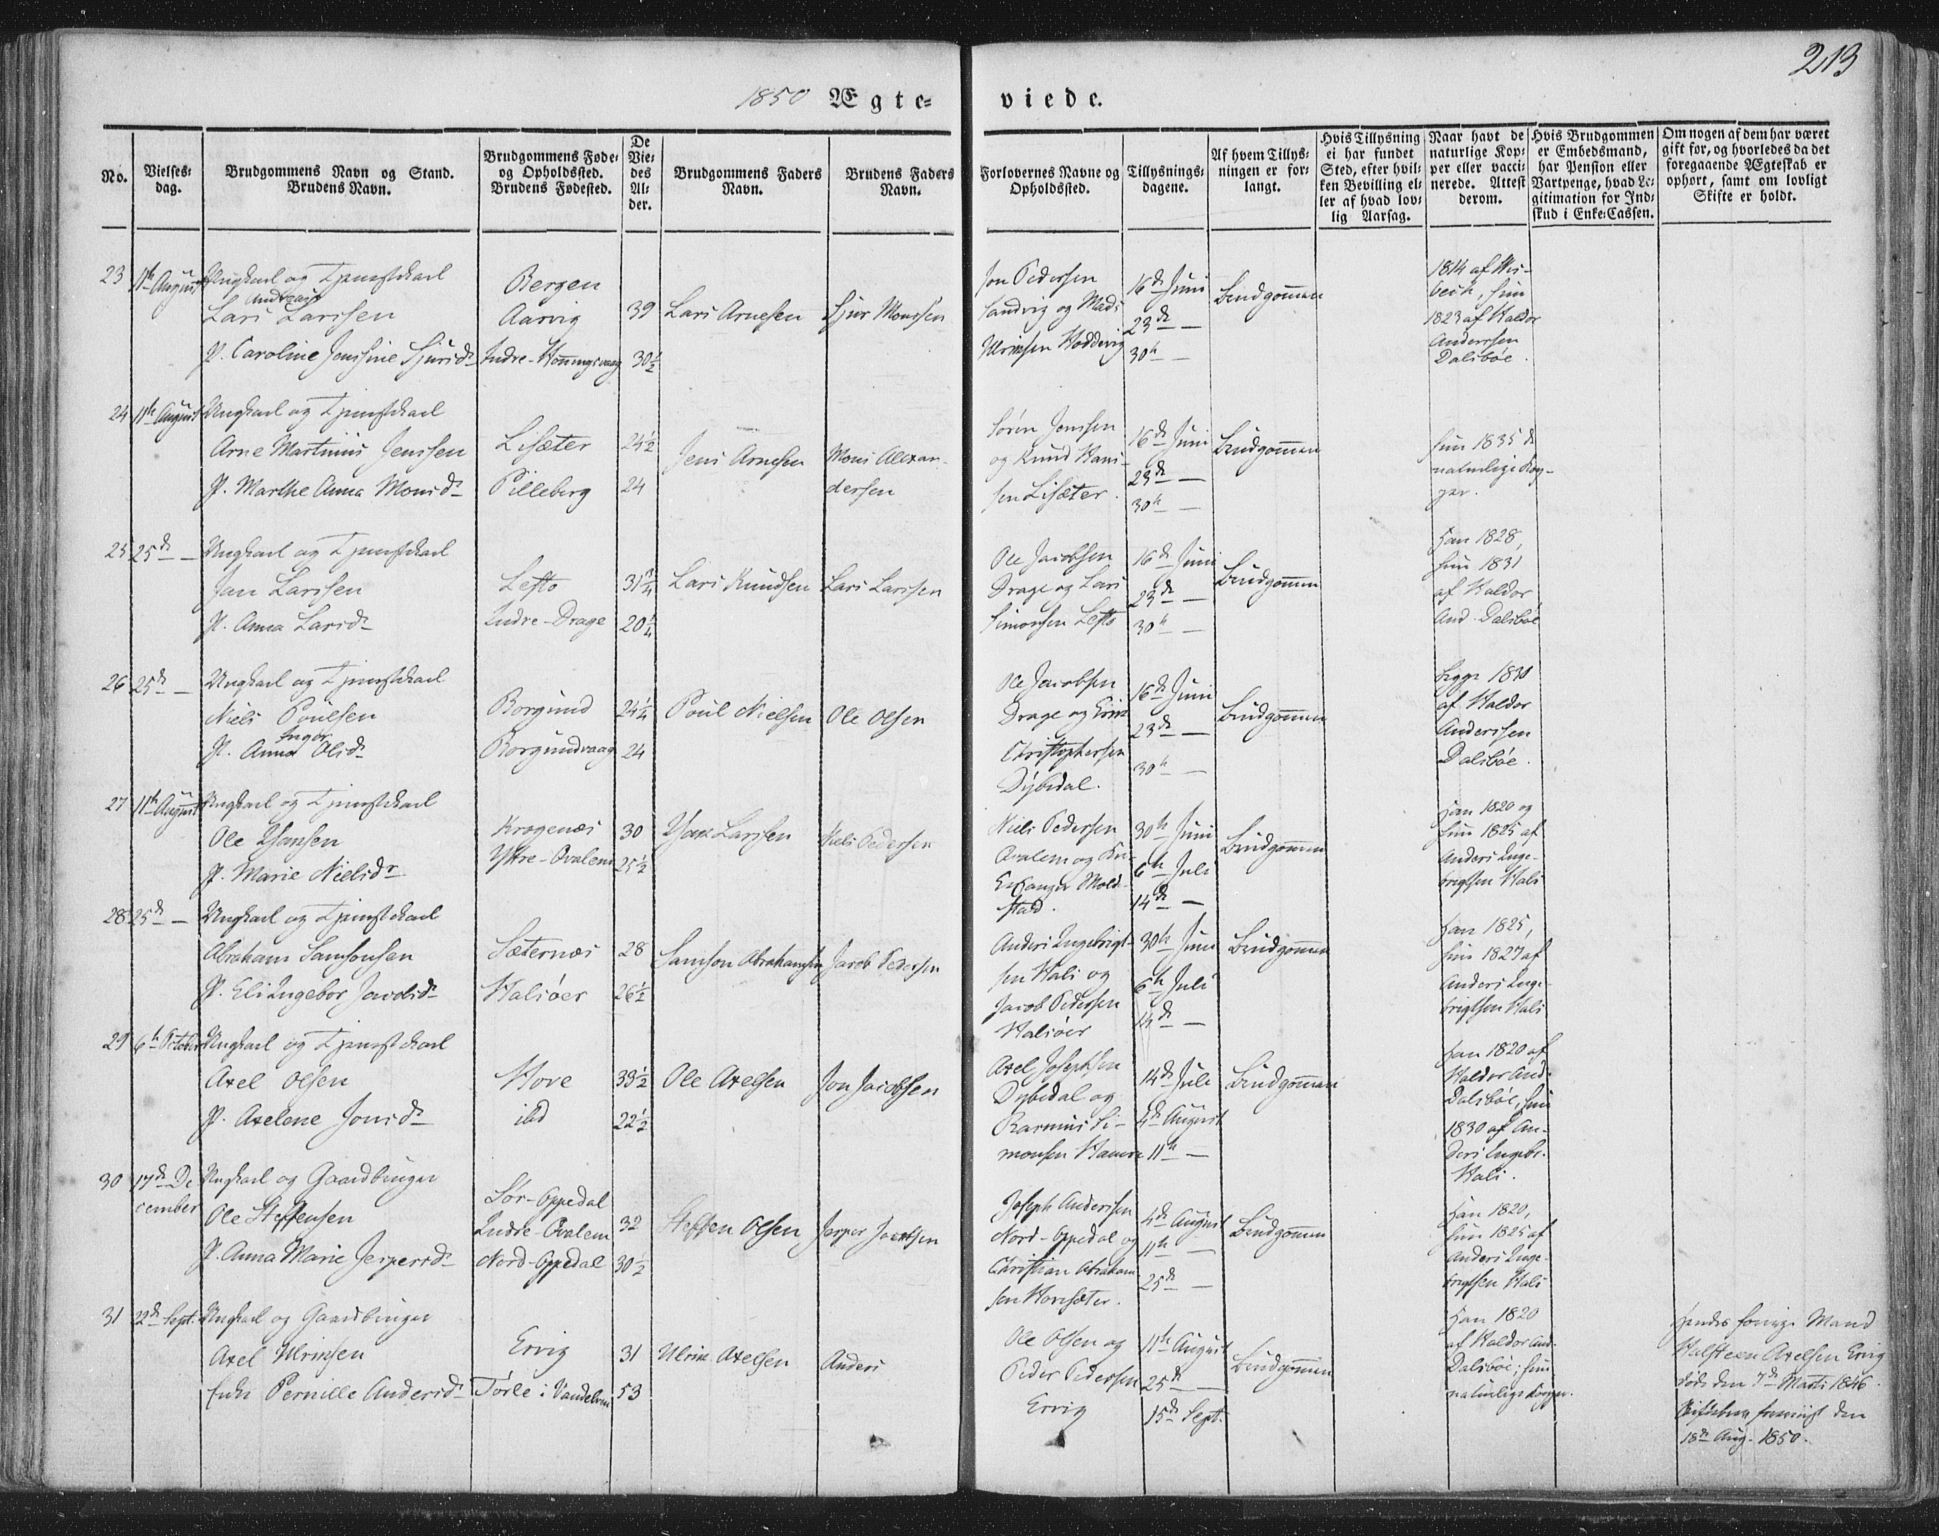 213
1850 Ægte-
viede.
No.
Vielses-
dag.
Brudgommens Navn og Stand.
Brudens Navn.
Brudgommens Føde-
og Opholdssted.
Brudens Fødested.
De
Vie-
des
Al-
der.
Brudgommens Faders
Navn.
Brudens Faders
Navn.
Forlovernes Navne og
Opholdssted.
Tillysnings-
dagene.
Af hvem Tillys-
ningen er for-
langt.
Hvis Tillysning
ei har fundet
Sted, efter hvil-
ken Bevilling el-
ler af hvad lov-
lig Aarsag.
Naar havt de
naturlige Kop-
per eller vacci-
nerede. Attest
derom.
Hvis Brudgommen
er Embedsmand,
har Pension eller
Vartpenge, hvad Le-
gitimation for Ind-
skud i Enke-Cassen.
Om nogen af dem har været
gift før, og hvorledes da det
foregaaende Ægteskab er
ophørt, samt om lovligt
Skifte er holdt.
23
11te August
Ungkarl og Tjenstekarl
Andreas
Lars Larssen
P. Caroline Jenssine Sjursdr
Bergen
Aarvig
Indre-Honningsvaag
39
30½
Lars Arnesen
Sjur Monssen
Jon Pedersen
Sandvig og Mads
Ulriksen Hoddevig
16de Juni
23de —
30te —
Brudgommen
1814 af
hun
1823 af Haldor
Anderssen
Dalsbøe.
24
11te August
Ungkarl og Tjenstekarl
Arne Martinus Jenssen
P. Marthe Anna Monsdr
Lisæter
Pilleberg
24½
24
Jens Arnesen
Mons Alexan-
dersen
Søren Jenssen
og Knud Hans-
sen Lisæter.
16de Juni
23de —
30te —
Brudgommen
hun 1835 d
naturlige Kop-
per.
25
25de —
Ungkarl og Tjenstekarl
Jan Larssen
P. Anna Larsdr
Lefto
Indre-Drage
31¾
20¼
Lars Knudsen
Lars Larssen
Ole Jacobsen
Drage og Lars
Simonsen Lefto
16de Juni
23de —
30te
Brudgommen
Han 1828,
hun 1831
af Haldor
And. Dalsbøe
26
25de —
Ungkarl og Tjenstekarl
Niels Poulsen
Ingbr
P. Anna Olsdr
Borgund
Borgundvaag
24¼
24
Poul Nielsen
Ole Olsen
Ole Jacobsen
Drage og
Christophersen
Dybedal.
16de Juni
23de —
30te —
Brudgommen
begge 1830
af Haldor
Anderssen
Dalsbøe.
27
11te August
Ungkarl og Tjenstekarl
Ole Hansen
P. Marie Nielsdr
Kragenæs
Yttre-Ovalem
30
25½
Larssen
Niels Pedersen
Niels Pedersen
Ovalem og
Mold-
stad.
30te Juni
6te Juli
14de —
Brudgommen
Han 1820 og
hun 1825 af
Anders Inge-
brigtsen Hals
28
25de —
Ungkarl og Tjenstekarl
Abraham Samsonsen
P. Eli Ingebor Jacobsdr
Sæternæs
Halsøer
28
26½
Samson Abrahamsen
Jacob Pedersen
Anders Ingebrigt-
sen Hals og
Jacob Pedersen
Halsøer
30te Juni
6te Juli
14de —
Brudgommen
Han 1825,
hun 1827 af
Anders Inge-
brigtsen Hals
29
6te October
Ungkarl og Tjenstekarl
Axel Olsen
P. Axelene Jonsdr
Hove
ibd
33½
22½
Ole Axelsen
Jon Jacobsen
Axel Josephsen
Dybedal og
Rasmus Si-
monsen Hamre
14de Juli
4de August
11te —
Brudgommen
Han 1820 af
Haldor And.
Dalsbøe, hun
1830 af An-
ders Ingebr.
Hals.
30
17de De
cember
Ungkarl og Gaardbruger
Ole Steffensen
P. Anna Marie Jespersdr
Sør-Oppedal
Indre-Ovalem
Nord-Oppedal
32
30½
Steffen Olsen
Jesper Jacobsen
Joseph Anderssen
Nord-Oppedal og
Christian Abraham
sen Hovesæter.
4de August
11te —
25de —
Brudgommen
Han 1820,
hun 1825 af
Anders Inge-
brigtsen Hals
31
22de Sept.
Ungkarl og Gaardbruger
Axel Ulriksen
Enke Pernille Andersdr
Ervig
Tørle i Vandelven
31
53
Ulrik Axelsen
Anders
Ole Olsen og
Peder Pedersen
Ervig
11te August
25de —
15de Sept.
Brudgommen
Han 1820
af Haldor And.
Dalsbøe; hun
naturlige Kopper.
Hendes forrige Mand
Halsteen Axelsen Ervig
døde den 7de Marts 1846.
Skiftebrev foreviist den
18de Aug. 1850.